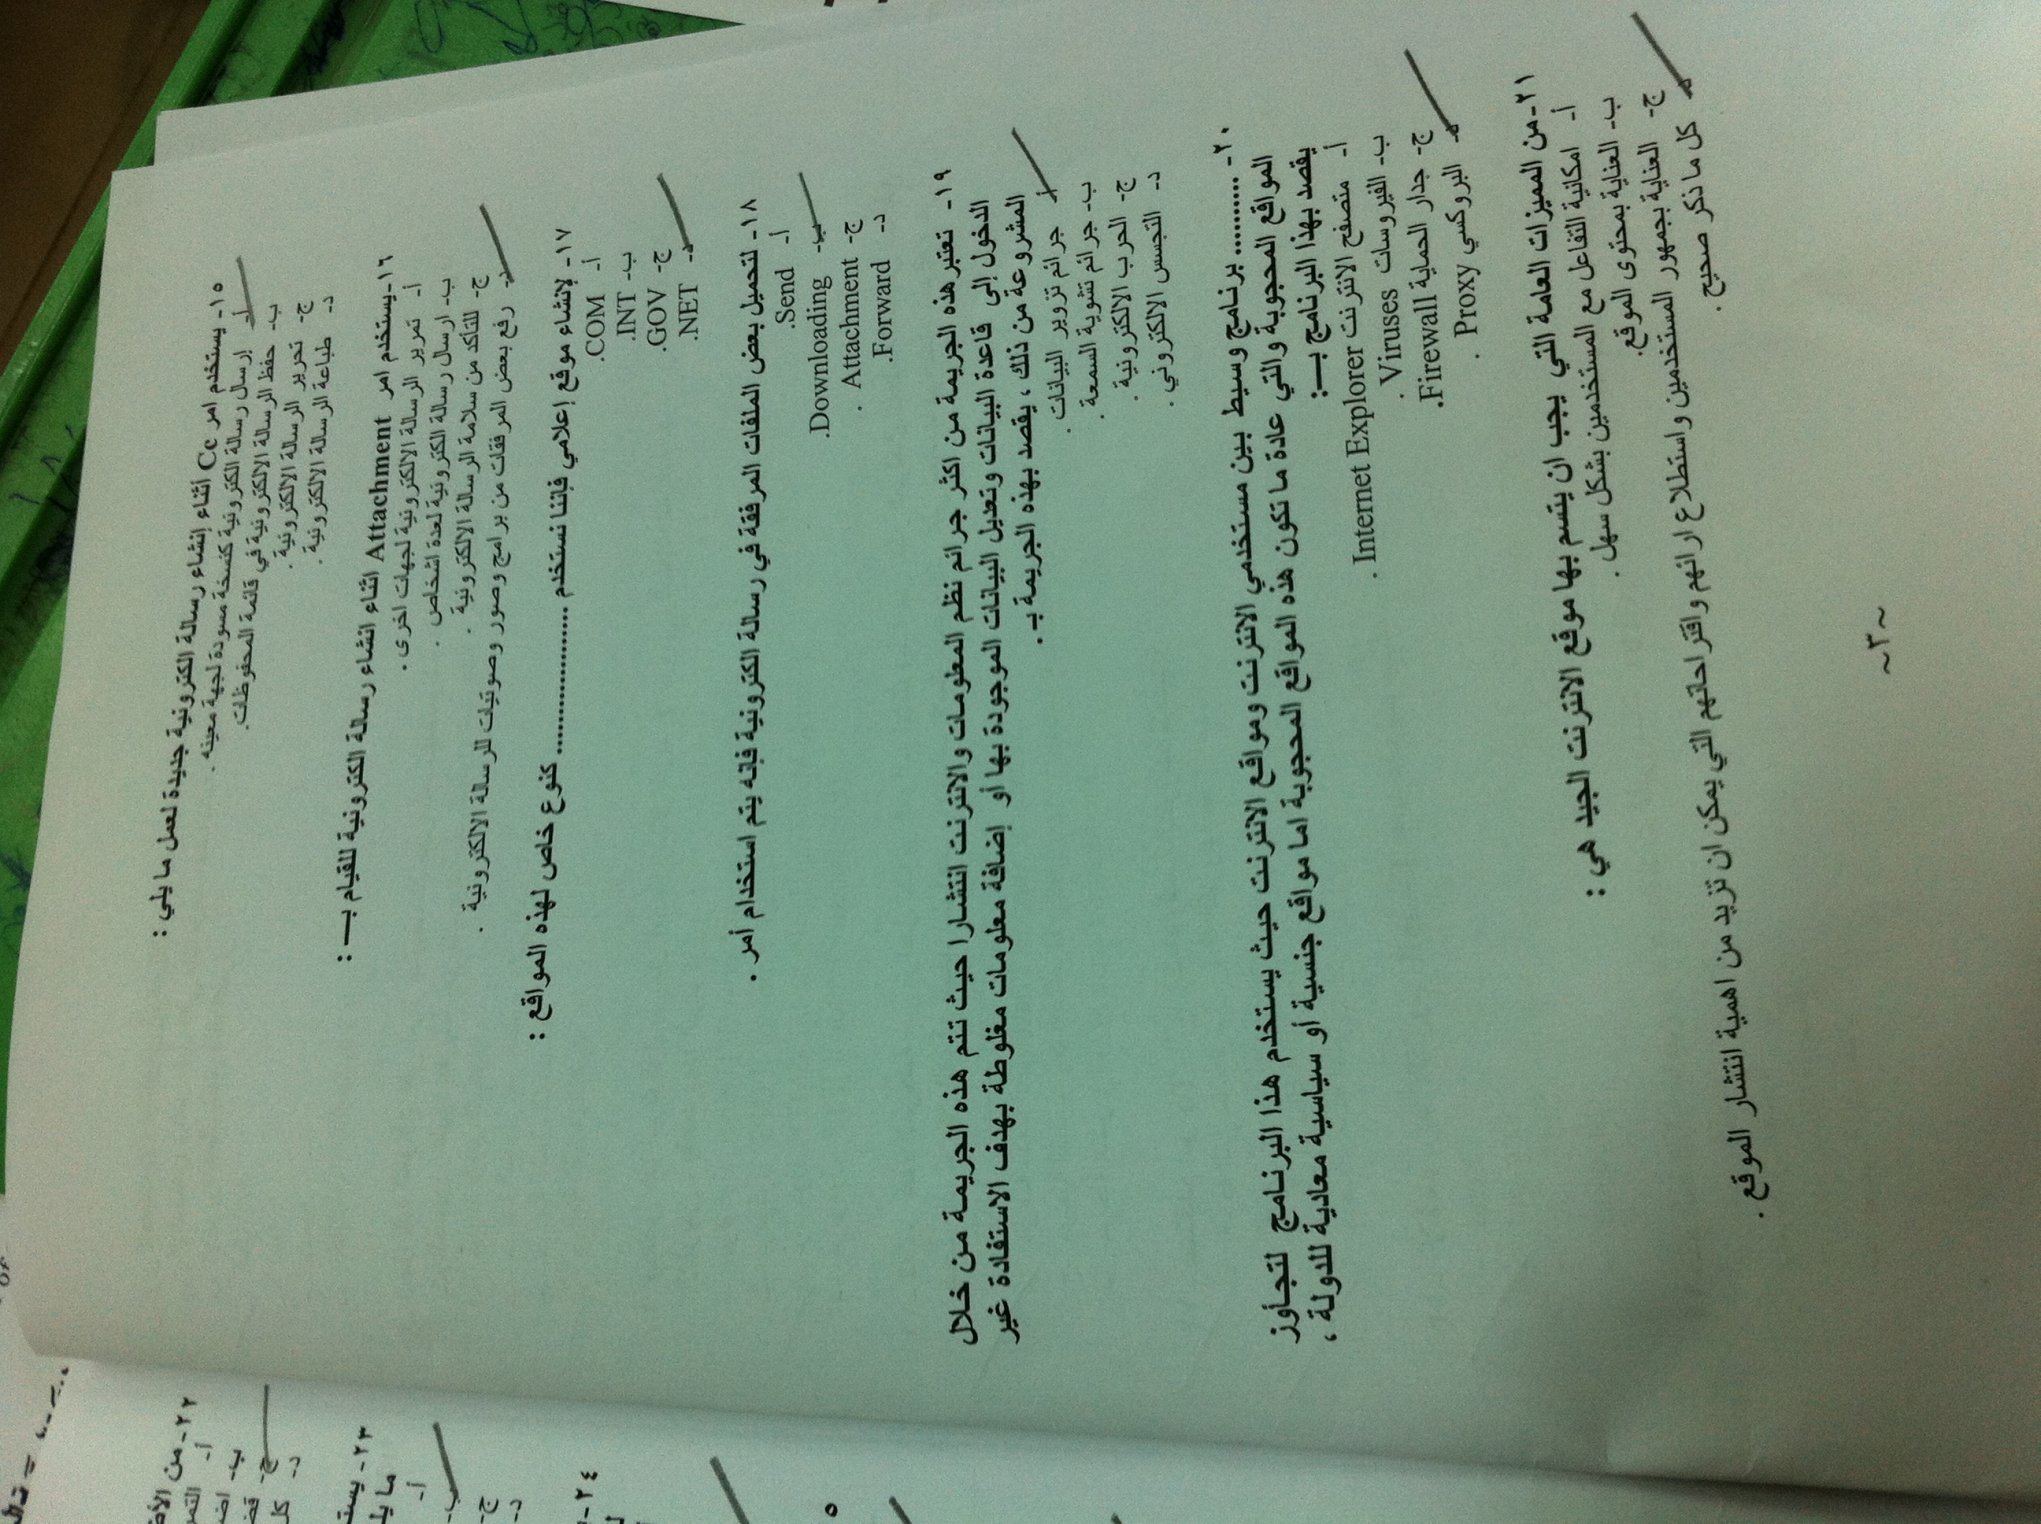 ١٥- يستخدم امر Cc اثناء إنشاء رسالة الكترونية جديدة لعمل ما يلي :
أ- إرسال رسالة الكترونية كنسخة مسودة لجهة معينه .
ب- حفظ الرسالة الالكترونية في قائمة المحفوظات.
ج- تحرير الرسالة الالكترونية .
د- طباعة الرسالة الالكترونية .
١٦- يستخدم امر Attachment اثناء انشاء رسالة الكترونية للقيام بـ :
أ- تمرير الرسالة الالكترونية لجهات اخرى .
ب- ارسال رسالة الكترونية لعدة اشخاص .
ج- للتأكد من سلامة الرسالة الالكترونية .
د- رفع بعض المرفقات من برامج وصور وصوتيات للرسالة الالكترونية .
١٧- لإنشاء موقع إعلامي فإننا نستخدم .................. كنوع خاص لهذه المواقع :
أ- COM.
ب- INT.
ج- GOV.
د- NET.
١٨- لتحميل بعض الملفات المرفقة في رسالة الكترونية فإنه يتم استخدام أمر .
أ- Send.
ب- Downloading.
ج- Attachment .
د- Forward.
١٩- تعتبر هذه الجريمة من اكثر جرائم نظم المعلومات والانترنت انتشارا حيث تتم هذه الجريمة من خلال
الدخول إلى قاعدة البيانات وتعديل البيانات الموجودة بها أو إضافة معلومات مغلوطة بهدف الاستفادة غير
المشروعة من ذلك ، يقصد بهذه الجريمة بـ .
أ- جرائم تزوير البيانات .
ب- جرائم تشوية السمعة .
ج- الحرب الالكترونية .
د- التجسس الالكتروني .
٢٠- .......... برنامج وسيط بين مستخدمي الانترنت ومواقع الانترنت حيث يستخدم هذا البرنامج لتجاوز
المواقع المحجوبة والتي عادة ما تكون هذه المواقع المحجوبة اما مواقع جنسية أو سياسية معادية للدولة ،
يقصد بهذا البرنامج بـ :
أ- متصفح الانترنت Internet Explorer .
ب- الفيروسات Viruses .
ج- جدار الحماية Firewall.
د- البروكسي Proxy .
٢١- من المميزات العامة التي يجب ان يتسم بها موقع الانترنت الجيد هي :
أ- امكانية التفاعل مع المستخدمين بشكل سهل .
ب- العناية بمحتوى الموقع.
ج- العناية بجمهور المستخدمين واستطلاع ارائهم واقتراحاتهم التي يمكن ان تزيد من اهمية انتشار الموقع .
د- كل ما ذكر صحيح .
~٣~
٢٢- من
أ-
ب-
ج-
د- كل
٢٣-
أ-
ب-
ج-
د-
٢٤-